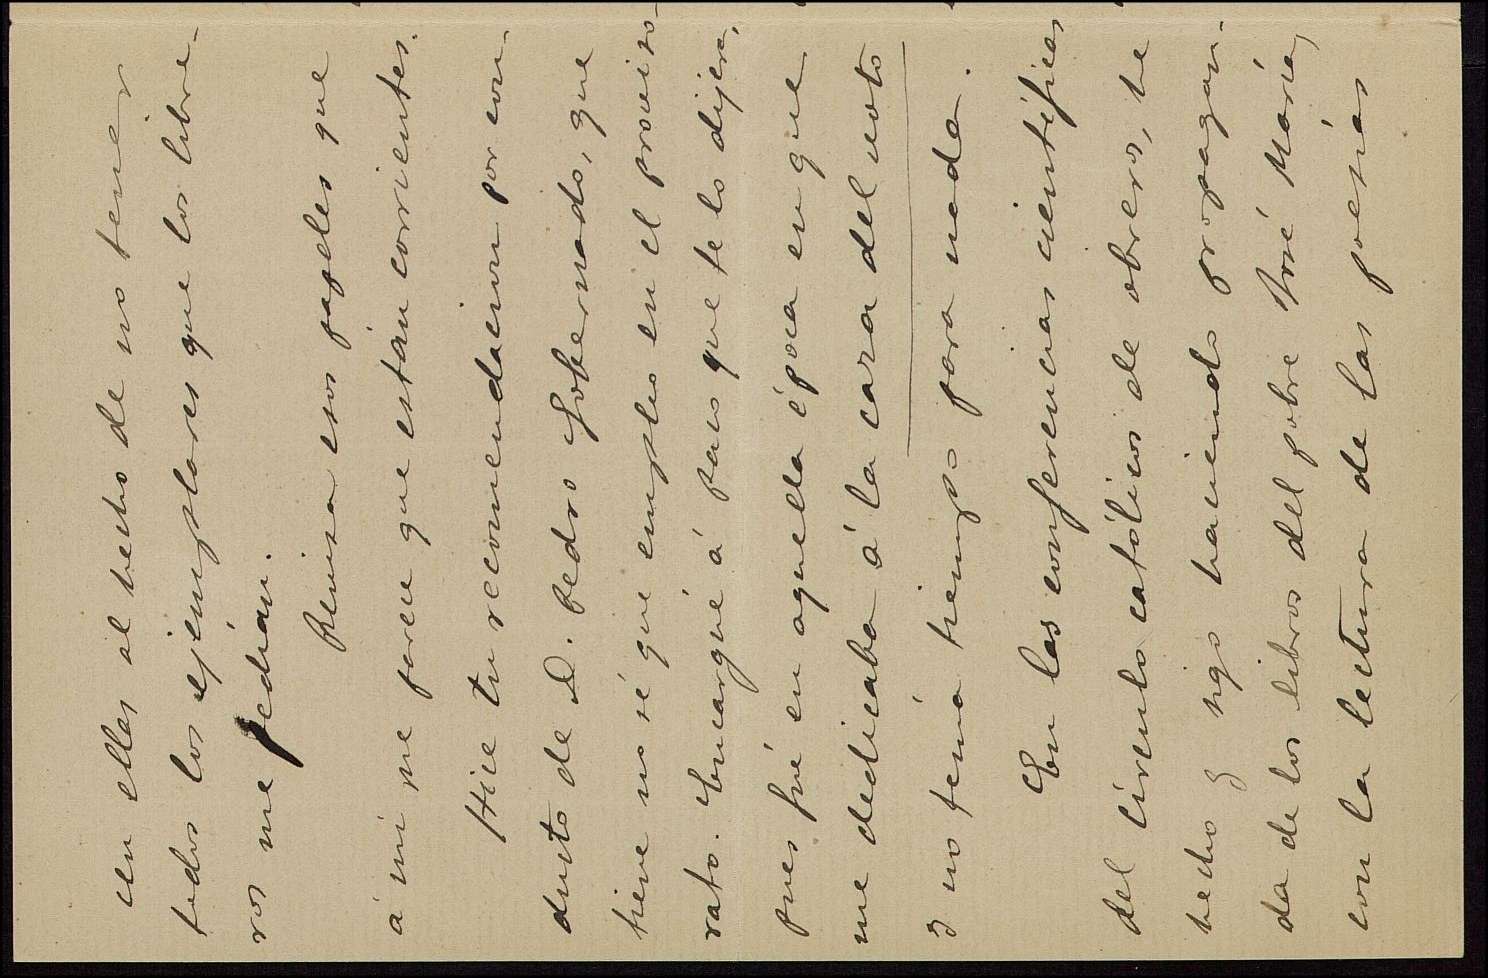 cen ellas al hecho de no tener
todos los ejemplares que los libre-
ros me pedían.
Revisa esos papeles que
á mi me parece que están corrientes.
Hice tu recomendacion por con-
ducto de D. Pedro Gobernado, que
tiene no sé que empleo en el proviso-
rato. Encargué á Paco que te lo dijera,
pues fué en aquella época en que
me dedicaba á la caza del voto
y no tenía tiempo para nada.
En las conferencias científicas
del Circulo católico de obreros, he
hecho y sigo haciendo propagan-
da de los libros del pobre José María,
con la lectura de las poesías